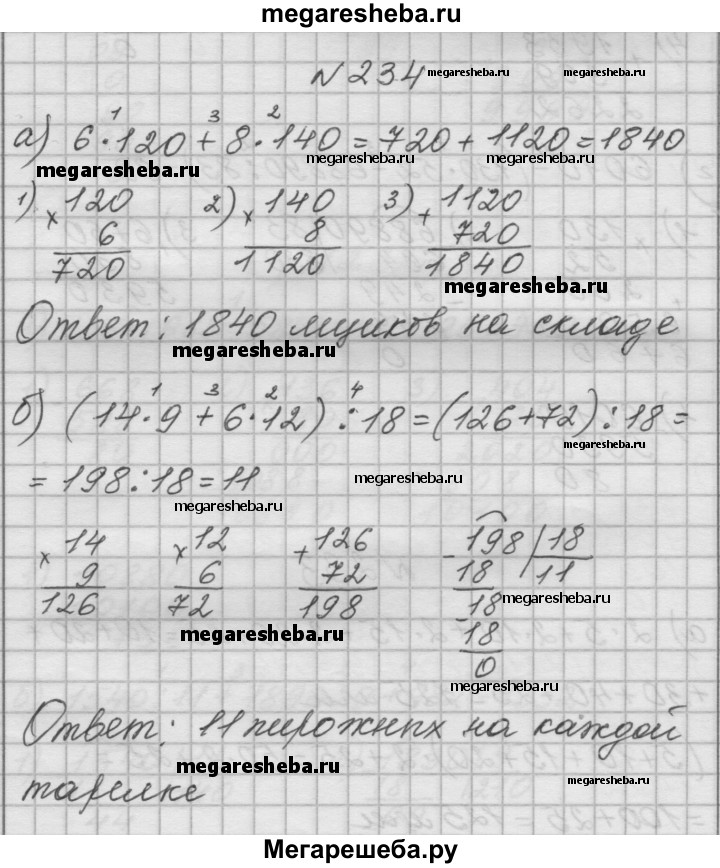 megaresheba.ru
№ 234 megaresheba.ru megaresheba.ru
1 3 2
а) 6·120 + 8·140 = 720 + 1120 = 1840
megaresheba.ru megaresheba.ru megaresheba.ru
1) × 120 2) × 140 3) + 1120
6 8 720
720 1120 1840
megaresheba.ru
Ответ: 1840 ящиков на складе
megaresheba.ru
1 3 2 4
б) (14·9 + 6·12) : 18 = (126+72) : 18 =
megaresheba.ru
= 198 : 18 = 11 megaresheba.ru
megaresheba.ru
× 14 × 12 + 126 - 198 | 18
9 6 72 18 11
126 72 198 - 18 megaresheba.ru
megaresheba.ru 18
0
megaresheba.ru
Ответ: 11 пирожных на каждой
megaresheba.ru megaresheba.ru
тарелке
Мегарешеба.ру